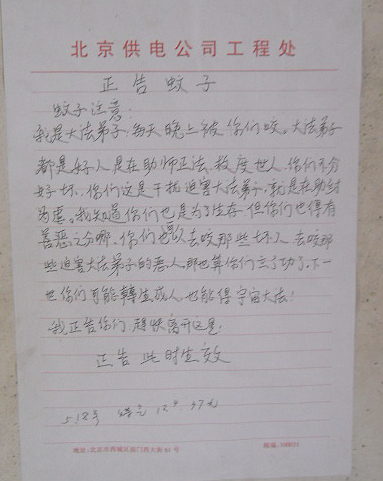 北京供电公司工程处
正告蚊子
蚊子注意.
我是大法弟子,每天晚上被你们咬。大法弟子
都是好人是在助师正法,救度世人,你们不分
好坏,你们这是干扰迫害大法弟子,就是在助纣
为虐。我知道你们也是为了生存,但你们也得有
善恶之分哪。你们可以去咬那些坏人,去咬那
些迫害大法弟子的恶人,那也算你们立了功了。下一
世你们可能轉生成人,也能得宇宙大法!
我正告你们 趕快离开这里.
正告 此时生效
地址:北京市西城区前门西大街41号
邮编:100031